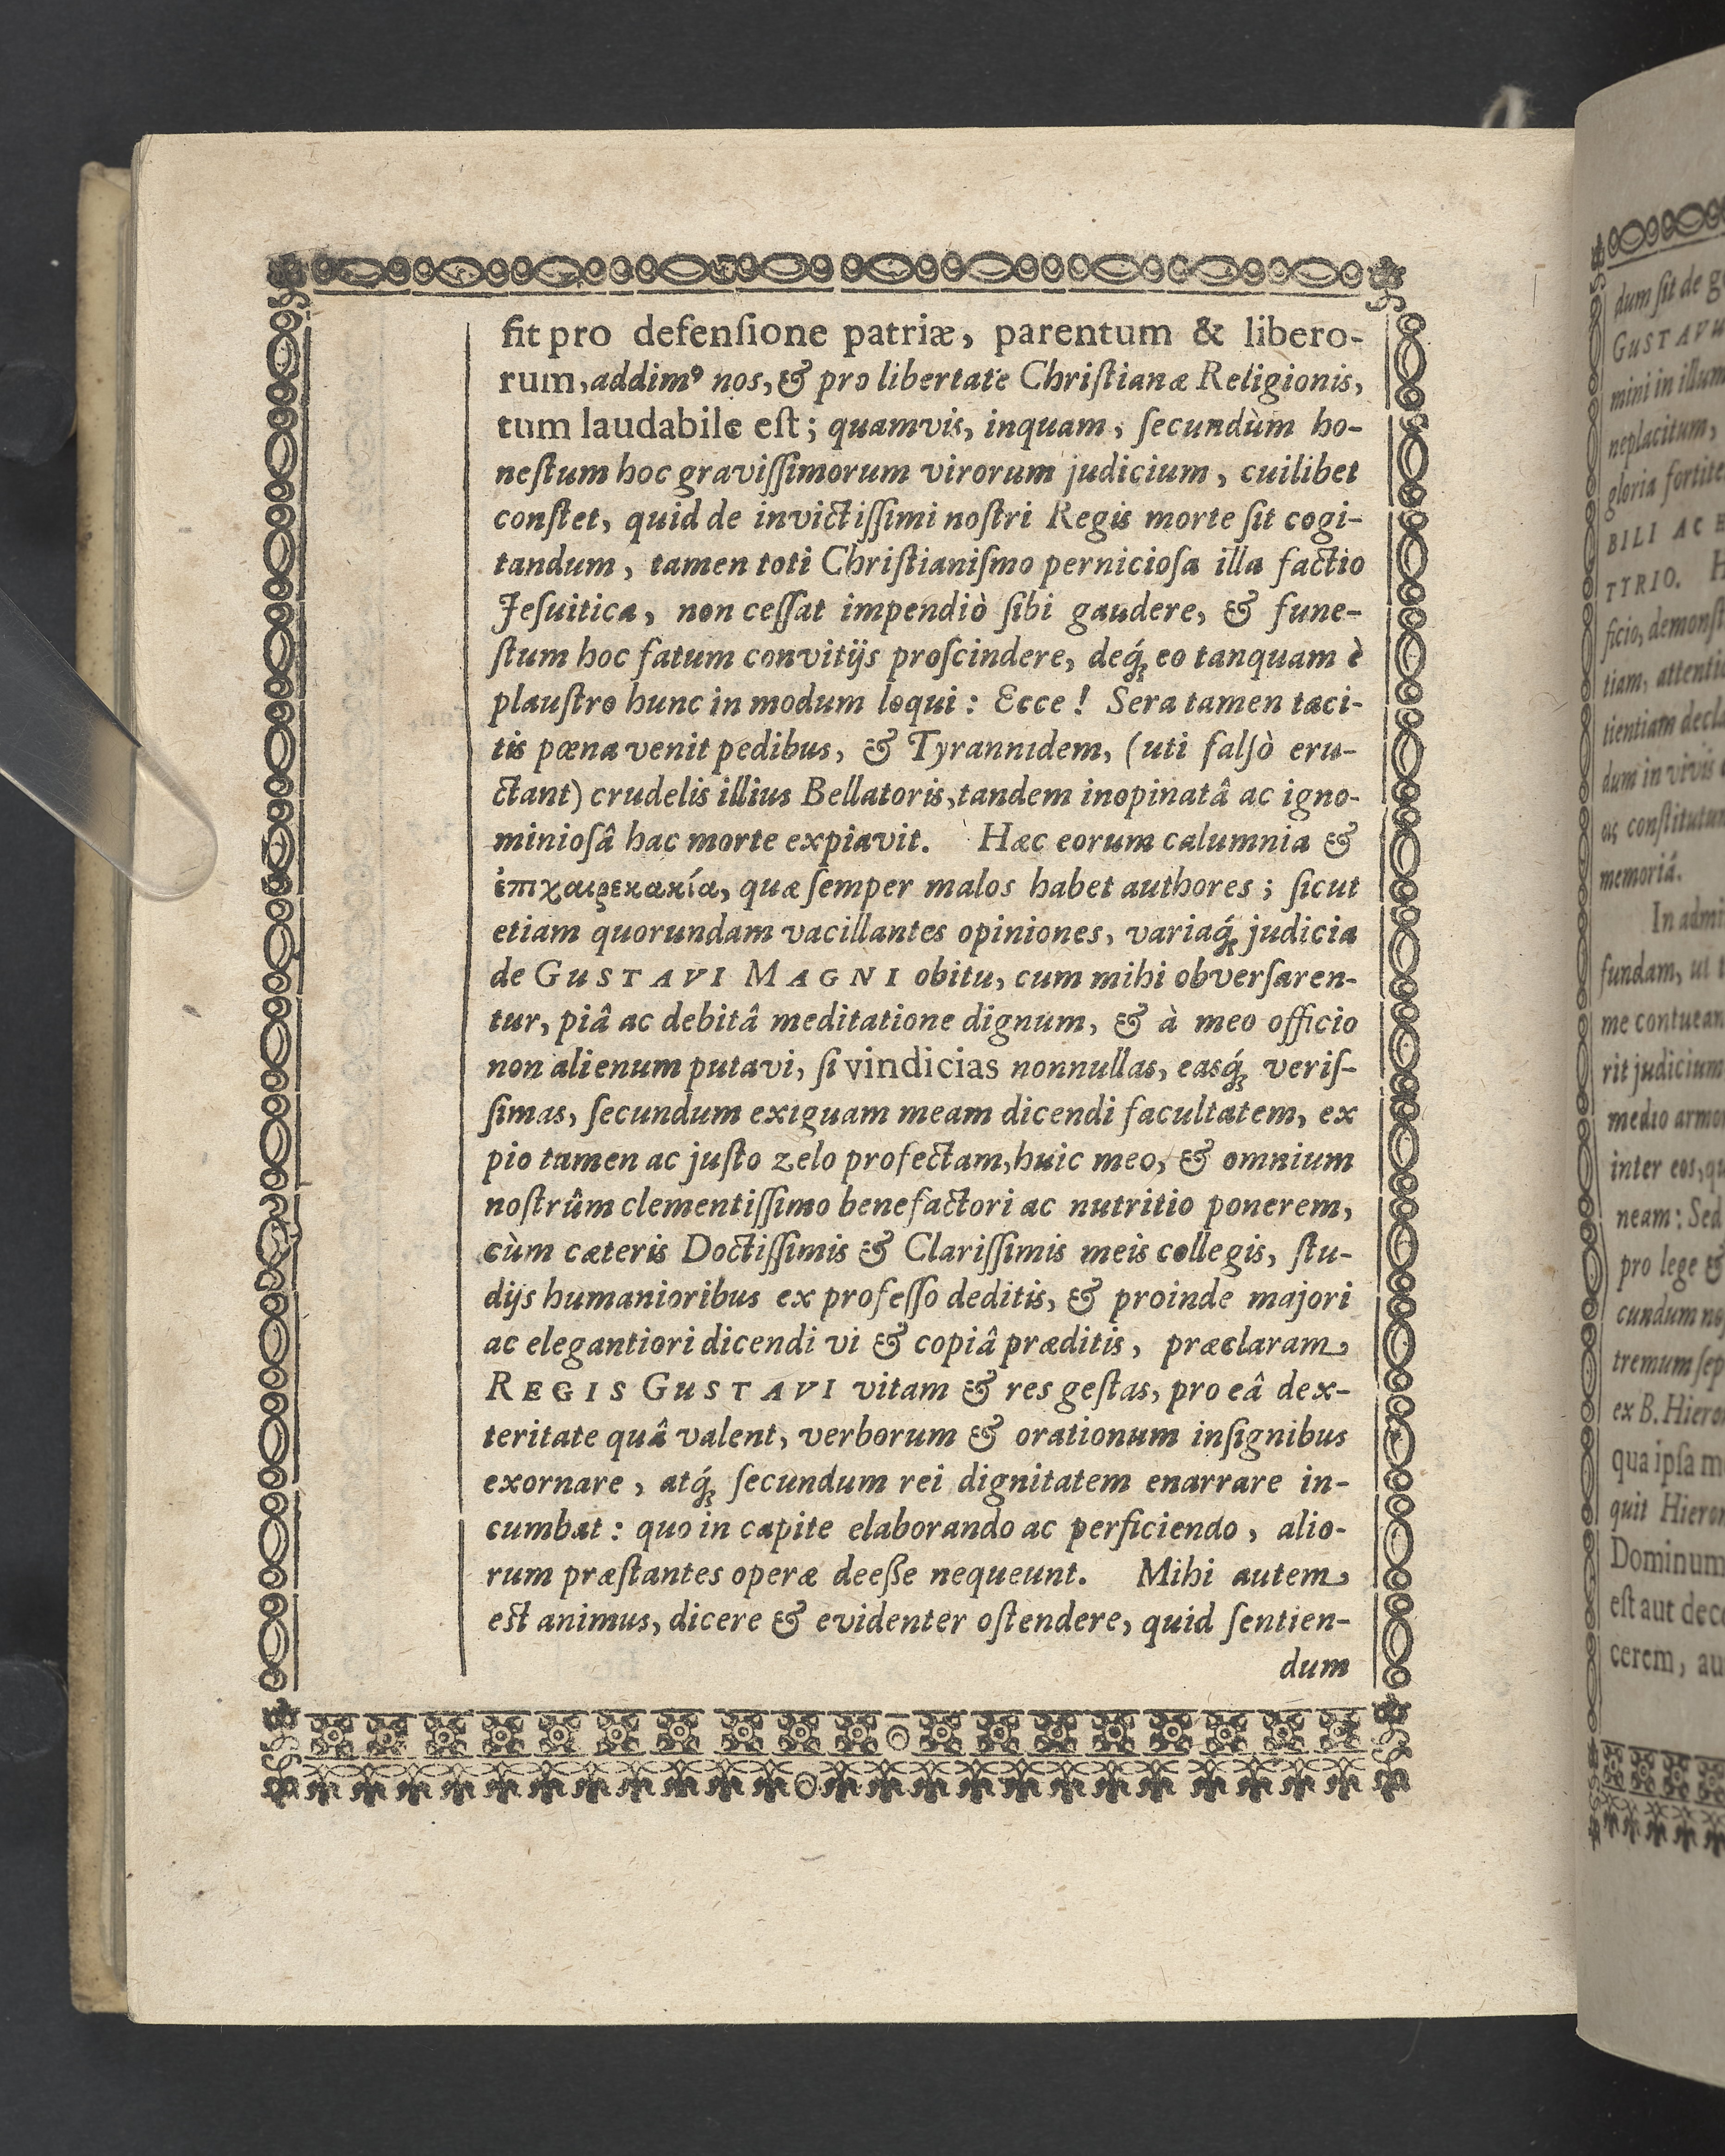 fit pro defenſione patriæ, parentum & libero-
rum, addimꝰ nos, & pro libertate Chriſtianæ Religionis,
tum laudabile eſt; quamvis, inquam, ſecundùm ho-
neſtum hoc graviſſimorum virorum judicium, cuilibet
conſtet, quid de invictiſſimi noſtri Regis morte ſit cogi-
tandum, tamen toti Chriſtianiſmo pernicioſa illa factio
Jeſuitica, non ceſſat impendiò ſibi gaudere, & fune-
ſtum hoc fatum convitijs proſcindere, deq́; eo tanquam è
plauſtro hunc in modum loqui: Ecce! Sera tamen taci-
tis pœna venit pedibus, & Tyrannidem, (uti falſò eru-
ctant) crudelis illius Bellatoris, tandem inopinatâ ac igno-
minioſâ hac morte expiavit. Hæc eorum calumnia &
ἐπιχαιρεκακία, quæ ſemper malos habet authores; ſicut
etiam quorundam vacillantes opiniones, variaq́; judicia
de GUSTAVI MAGNI obitu, cum mihi obverſaren-
tur, piâ ac debitâ meditatione dignum, & à meo officio
non alienum putavi, ſi vindicias nonnullas, easq́; veriſ-
ſimas, ſecundum exiguam meam dicendi facultatem, ex
pio tamen ac juſto zelo profectam, huic meo, & omnium
noſtrûm clementiſſimo benefactori ac nutritio ponerem,
cùm cæteris Doctiſſimis & Clariſſimis meis collegis, ſtu-
dijs humanioribus ex profeſſo deditis, & proinde majori
ac elegantiori dicendi vi & copiâ præditis, præclaram
REGIS GUSTAVI vitam & res geſtas, pro eâ dex-
teritate quâ valent, verborum & orationum inſignibus
exornare, atq́; ſecundum rei dignitatem enarrare in-
cumbat: quo in capite elaborando ac perficiendo, alio-
rum præſtantes operæ deeſſe nequeunt. Mihi autem
eſt animus, dicere & evidenter oſtendere, quid ſentien-
dum
dum ſit de
GUSTAVU
mini in illum
neplacitum,
gloria fortite
BILI AC
TYRIO. H
ficio, demonſt
tiam, attenti
tientiam decla
dum in vivis
ac conſtitutu
memoriâ.
In admi
fundam, ut
me contuean
rit judicium
medio armo
inter eos, qu
neam: Sed
pro lege &
cundum no
tremum ſep
ex B. Hiero
qua ipſa m
quit Hieron
Dominum
eſt aut dece
cerem, au